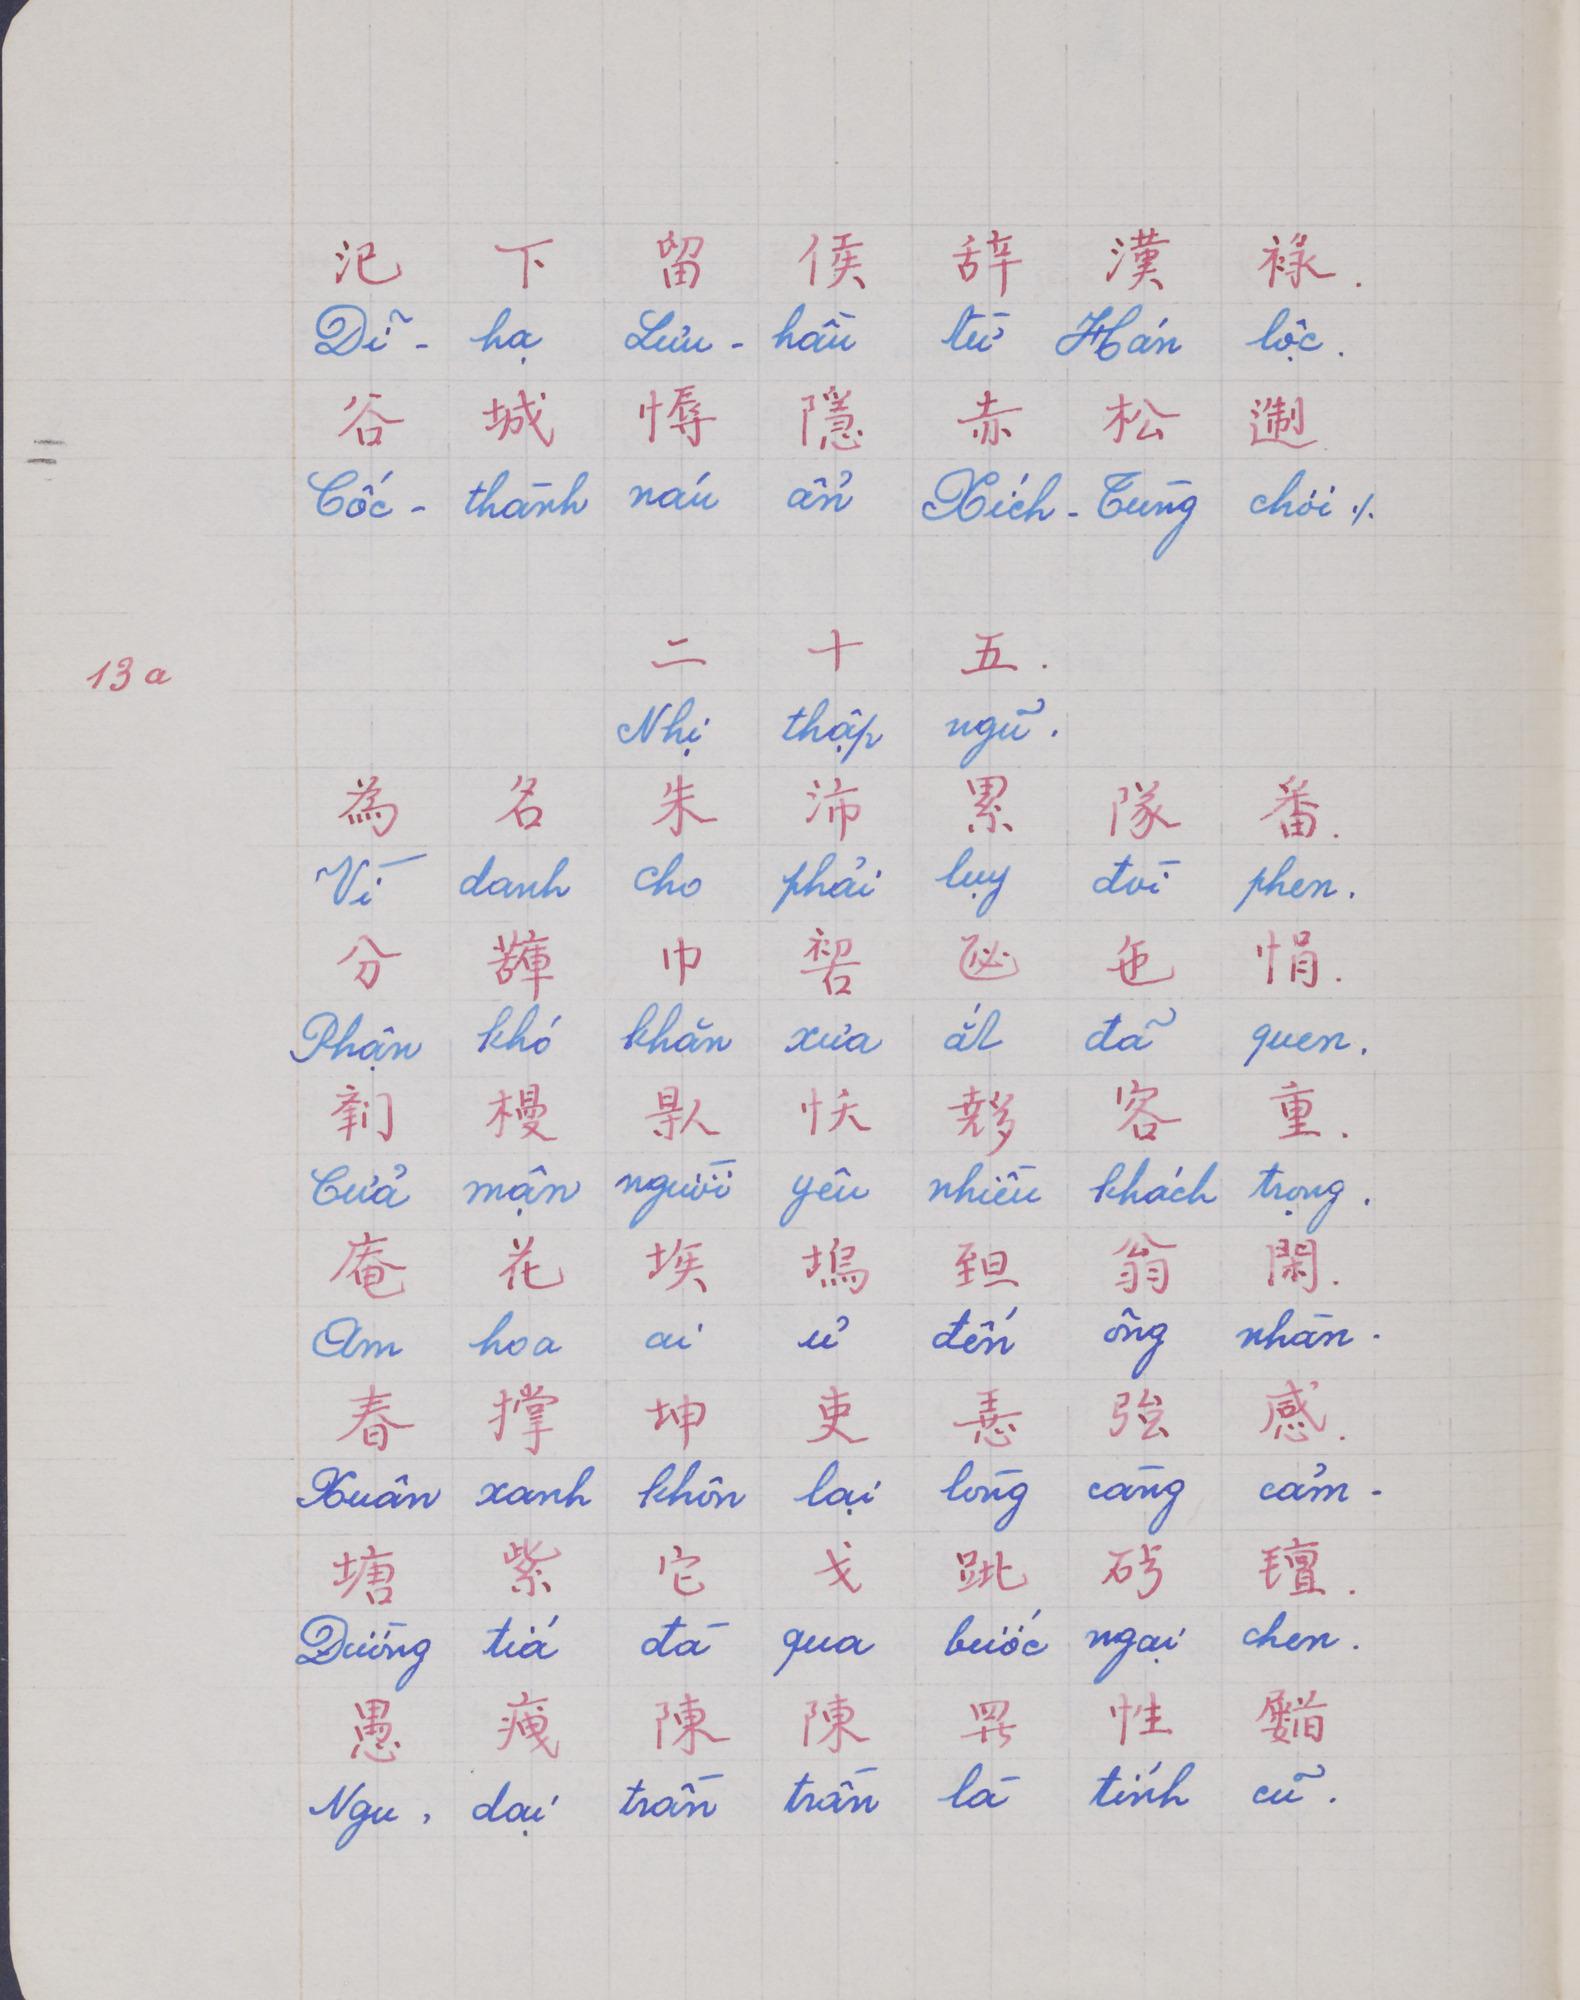 汜 下 留 侯 辞 漢 祿.
Dĩ - hạ Lưu - hầu từ Hán lộc.
谷 城 慱 隱 赤 松
Cốc - thành náu ẩn Xích - Tùng chơi ⁒.
二 十 五.
13a
Nhị thập ngũ.
為 名 朱 沛 累 隊 番.
Vì danh cho phải luỵ đòi phen.
分 巾 㐌 悁.
Phận khó khăn xưa ắt đã quen.
槾 容 重.
Cửa mận người yêu nhiều khách trọng.
庵 花 埃 塢 翁 閑.
Am hoa ai ủ đến ông nhàn.
春 撑 坤 吏 强 感.
Xuân xanh khôn lại lòng càng cảm.
塘 紫 它 戈 跐 砖.
Đường tiá đà qua bước ngại chen.
愚 陳 陳 性
Ngu, dại trần trần là tính cũ.